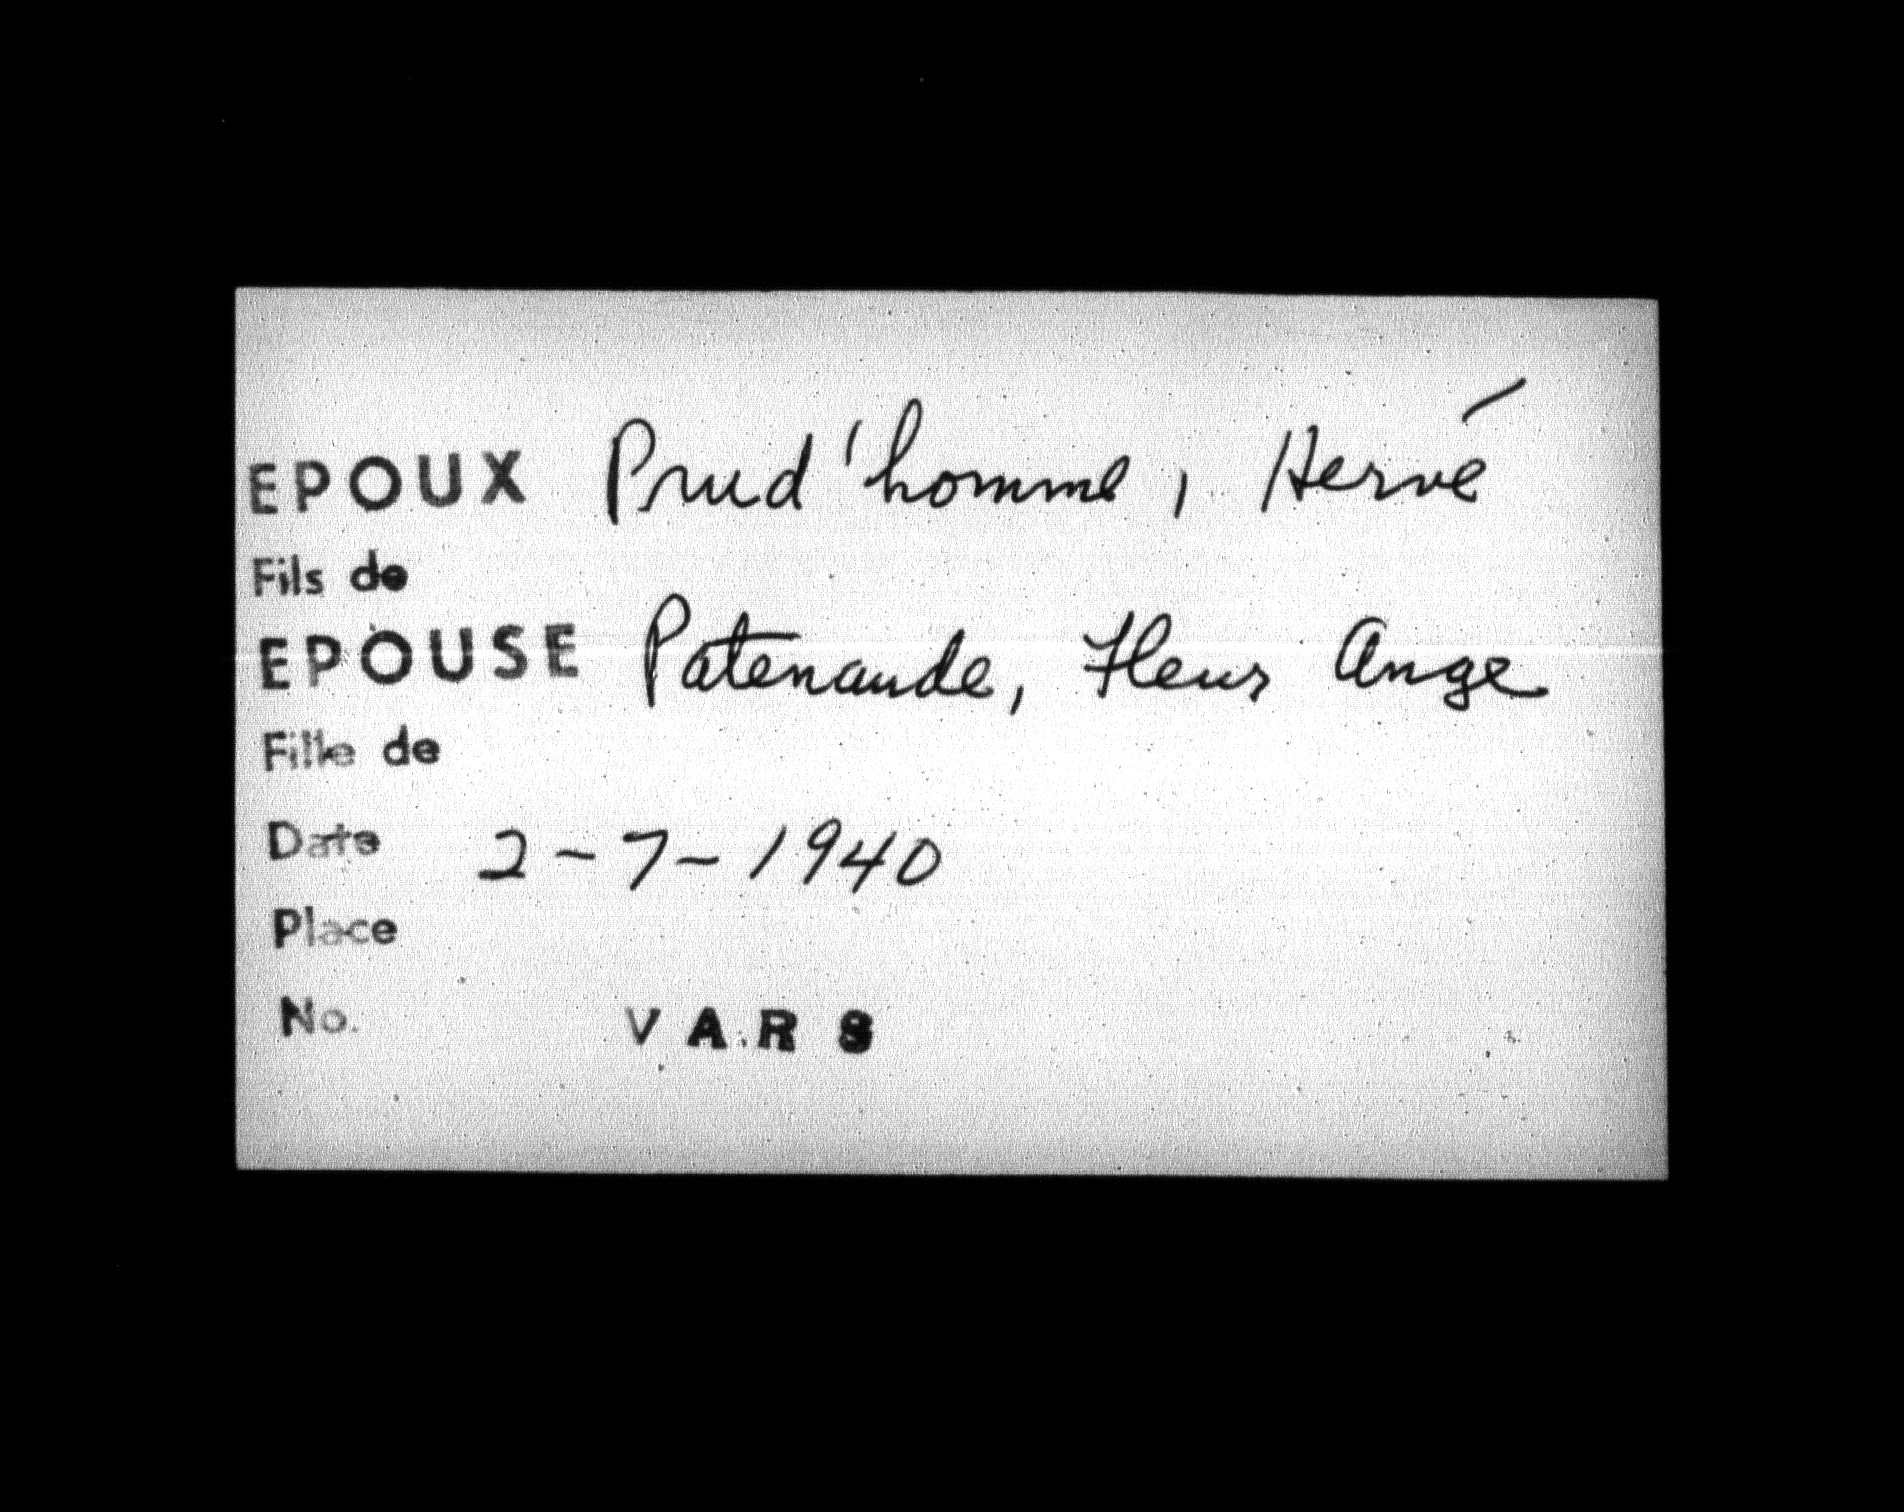 EPOUX Prud'homme, Hervé
Fils de
EPOUSE Patenaude, Fleur Ange
Fille de
Date 2-7-1940
Place
No. VARS